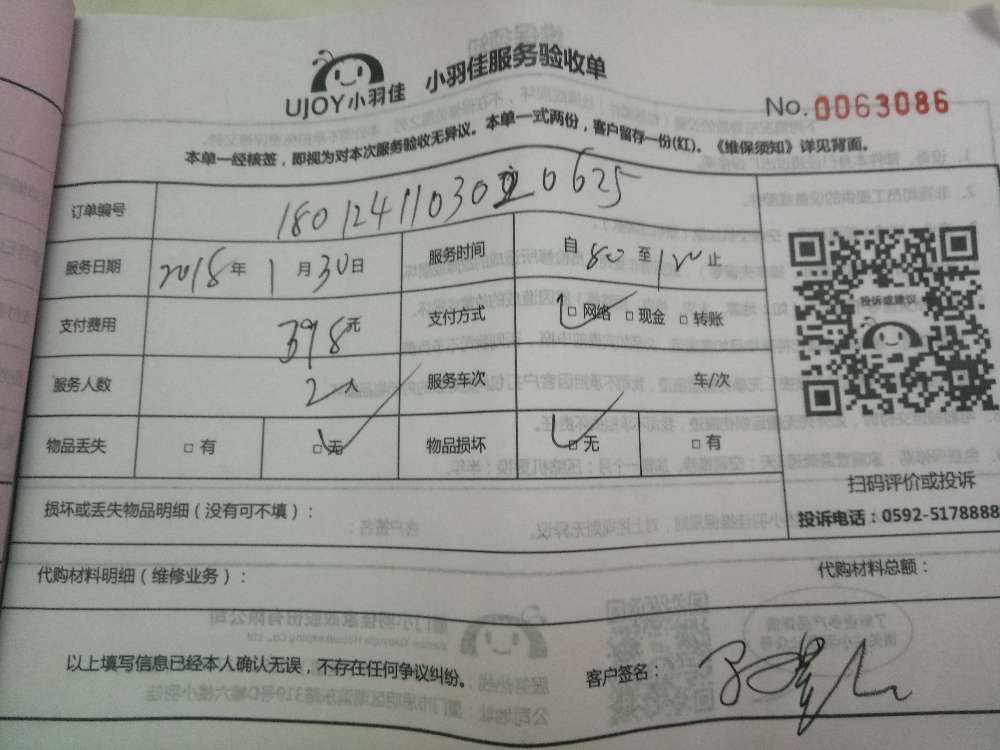 UJOY小羽佳 小羽佳服务验收单
No. 0063086
本单一经核签，即视为对本次服务验收无异议。本单一式两份，客户留存一份(红)。《维保须知》详见背面。
订单编号
服务日期 2018年1月30日 服务时间 自 至 止
支付费用 398元 支付方式 □网络 □现金 □转账
服务人数 2人 服务车次 车/次
物品丢失 □有 □无 物品损坏 □无 □有
投诉或建议
扫码评价或投诉
投诉电话：0592-5178888
损坏或丢失物品明细（没有可不填）：
代购材料明细（维修业务）： 代购材料总额：
以上填写信息已经本人确认无误，不存在任何争议纠纷。 客户签名：